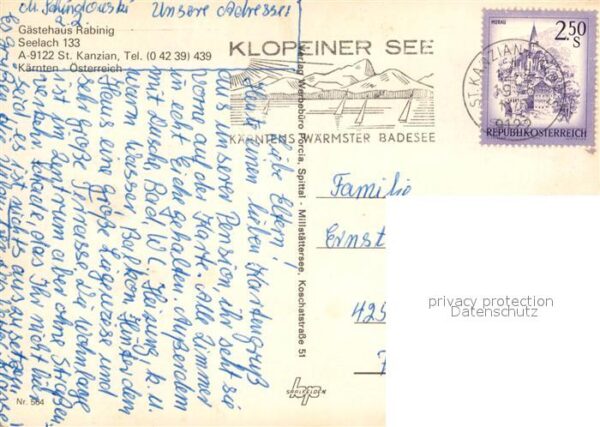 M. Schinglowski Unsere Adresse:
Gästehaus Rabinig
Seelach 133
A-9122 St. Kanzian, Tel. (0 42 39) 439
Kärnten - Österreich
KLOPEINER SEE
KÄRNTENS WÄRMSTER BADESEE
ST. KANZIAN
9122
MURAU
2.50
S
REPUBLIK ÖSTERREICH
Verlag Werbebüro Porcia, Spittal - Millstättersee, Koschatstraße 51
Liebe Eltern!
einen lieben Kartengruß
aus unserer Pension, ihr seht sie
vorne auf der Karte. Alle Zimmer
in echt Eiche gehalten. Außerdem
mit Dusch, Bad, W C, Heizung, k. u.
warm Wasser, Balkon. Hinter dem
Haus eine große Liegewiese und
große Terrasse. Die Wohnlage
ist im Zentrum aber ohne Straßen
Schade das Ihr nicht hier
seid es ist nichts auszusetzen
Familie
Ernst
425
privacy protection
Datenschutz
hp
SAALFELDEN
Nr. 564